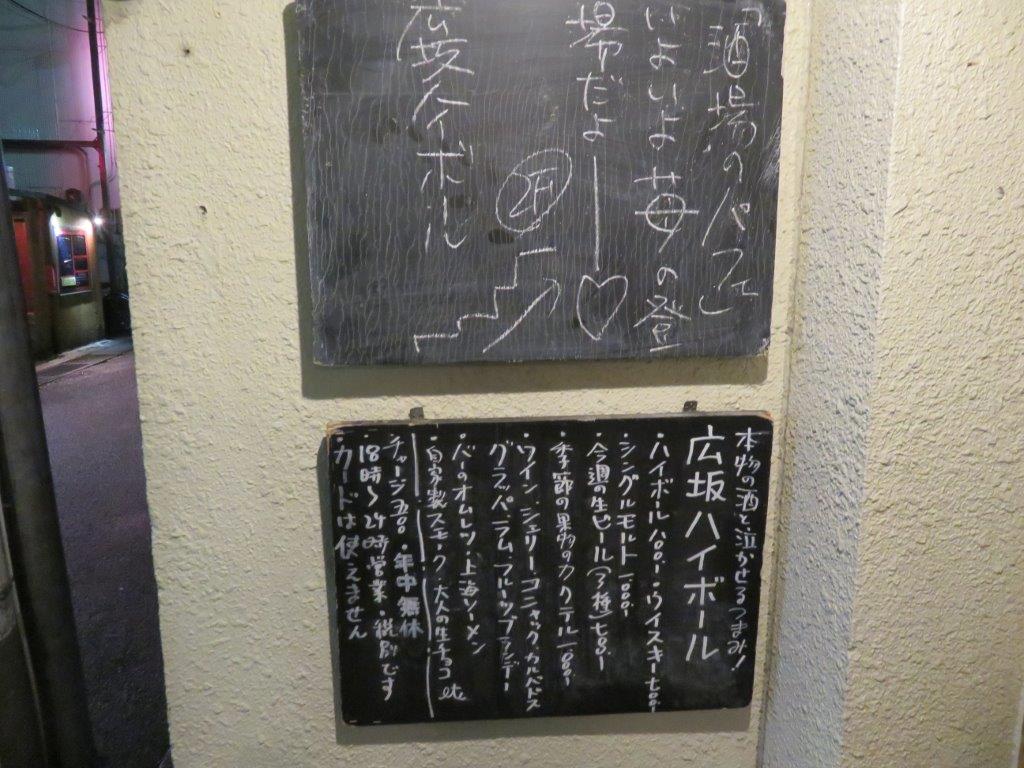 「酒場のパフェ」
いよいよ苺の登
場だよ
2F
広坂ハイボール
本物の酒と泣かせるつまみ!
広坂ハイボール
・ハイボール八〇〇-・ウイスキー七〇〇-
・シングルモルト一、〇〇〇-
・今週の生ビール(3種)七〇〇-
・季節の果物のカクテル一、一〇〇-
ワイン、シェリー、コニャック、カルバドス
グラッパ、ラム、フルーツブランデー
・バーのオムレツ・上海ソーメン
・自家製スモーク・大人の生チョコ etc
・チャージ五〇〇・年中無休
・18時〜24時営業・税別です
・カードは使えません